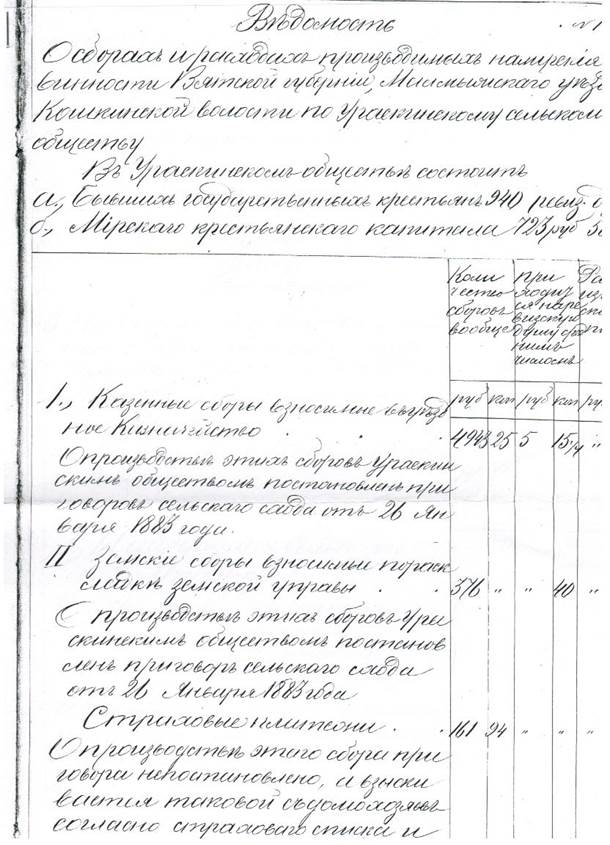 Вѣдомость
№ 1
О сборахъ и расходахъ производимыхъ на мірскія
винности Вятской губерніи, Малмыжскаго уѣзд
Кошкинской волости по Ураскинскому сельском
обществу
Въ Ураскинскомъ обществѣ состоитъ
а., Бывшихъ государственныхъ крестьянъ 940 ревиз. д
б., Мірскаго крестьянскаго капитала 723 руб
Коли
чество
сборовъ
вообще
При
ходит
ся на ре
визскую
душу од
нимъ
числомъ
руб коп руб коп ру
I., Казенные сборы взносимые въ уѣзд
ное Казначейство . 4943 25 5 15 1/4 "
О производствѣ этихъ сборовъ Ураскин
скимъ обществомъ постановленъ при
говоръ сельскаго схода отъ 26 Ян
варя 1883 года.
II Земскіе сборы взносимые по раск
ладкѣ земской управы . . 376 " " 40 "
О производствѣ этихъ сборовъ Ура
скинскимъ обществомъ постанов
ленъ приговоръ сельскаго схода
отъ 26 Января 1883 года
Страховые платежи . . 161 94 " " "
О производствѣ этого сбора при
говора непостановлено, а взыски
вается таковой съ домохозяевъ
согласно страховаго списка и